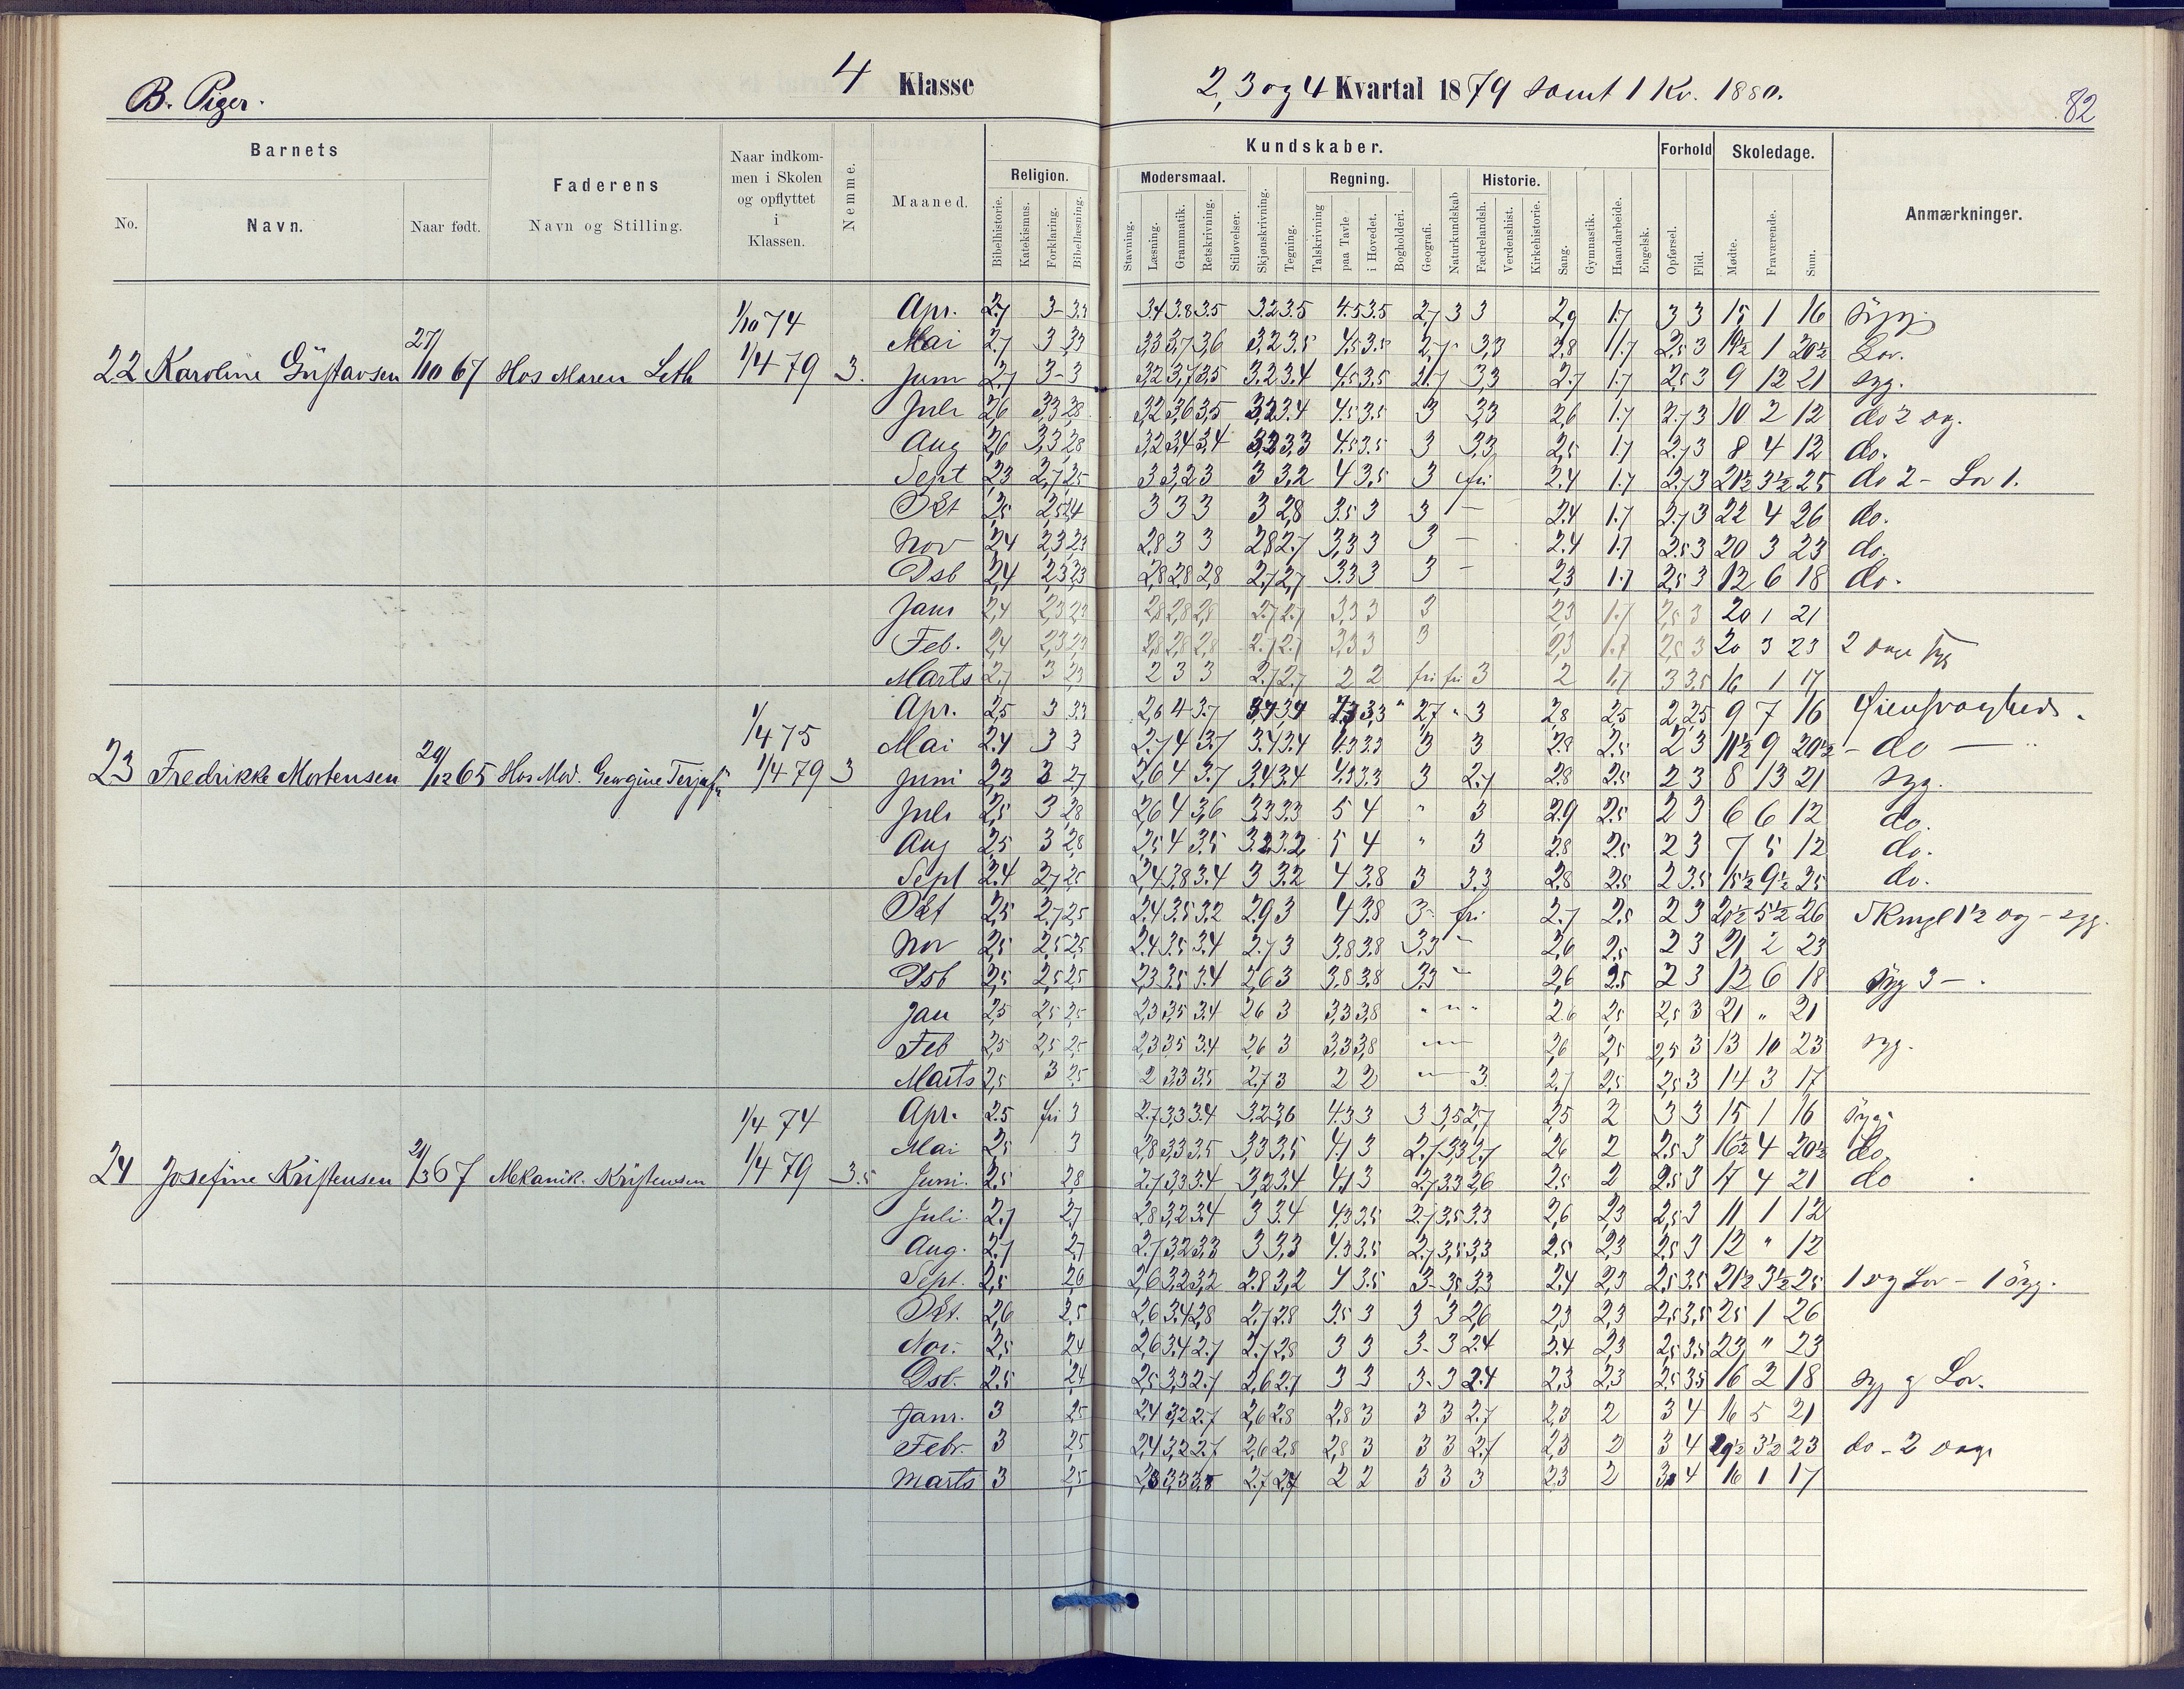 B. Piger.
4 Klasse
2, 3 og 4 Kvartal 1879 samt 1 Kv. 1880.
82
Barnets
No.
Navn.
Naar født.
Faderens
Navn og Stilling.
Naar indkom-
men i Skolen
og opflyttet
i
Klassen.
Nemme.
Maaned.
Kundskaber.
Religion.
Bibelhistorie.
Katekismus.
Forklaring.
Bibellæsning.
Modersmaal.
Stavning.
Læsning.
Grammatik.
Retskrivning.
Stiløvelser.
Skjønskrivning.
Tegning.
Regning.
Talskrivning
paa Tavle
i Hovedet.
Bogholderi.
Geografi.
Naturkundskab
Historie.
Fædrelandsh.
Verdenshist.
Kirkehistorie.
Sang.
Gymnastik.
Haandarbeide.
Engelsk.
Forhold
Opførsel.
Flid.
Skoledage.
Mødte.
Fraværende.
Sum.
Anmærkninger.
22 Karoline Gustavsen 27/10 67 Hos Maren Leth 1/10 74 1/4 79 3.
Apr. 2.7 3- 3.3 3.4 3.8 3.5 3.2 3.5 4.5 3.5 2,7 3 3 2,9 1.7 3 3 15 1 16
Mai 2.7 3 3,3 3,3 3,7 3,6 3,2 3.5 4.5 3.5 2,7 " 3,3 2.8 1.7 2.5 3 19½ 1 20½ Lov.
Juni 2.7 3- 3 3,2 3,7 3,5 3.2 3.4 4.5 3.5 3,3 2.7 1.7 2.5 3 9 12 21 syg.
Juli 2,6 3,3 2,8 3,2 3,6 3,5 3,2 3.4 4.5 3.5 3 3,3 2,6 1.7 2.7 3 10 2 12
Aug 2,6 3,3 2,8 3,2 3,4 3,4 3,2 3,3 4.5 3.5 3 3,3 2,5 1.7 2.7 3 8 4 12 do.
Sept 2,3 2,7 2,5 3 3,2 3 3 3,2 4 3,5 3 fri 2.4 1.7 2.7 3 21½ 3½ 25 do 2 - Lov 1.
Okt 2,5 2,5 2,4 3 3 3 3 2,8 3.5 3 3 - 2.4 1.7 2.7 3 22 4 26 do.
Nov 2,4 2,3 2,3 2,8 3 3 2,8 2.7 3,3 3 3 - 2.4 1.7 2.5 3 20 3 23 do.
Dsb 2,4 2,3 2,3 2,8 2,8 2,8 2,7 2,7 3.3 3 3 - 2,3 1.7 2,5 3 12 6 18 do.
Janr 2,4 2,3 2,3 2,8 2,8 2,8 2.7 2.7 3,3 3 3 2,3 1.7 2,5 3 20 1 21
Feb. 2,4 2,3 2,3 2,8 2,8 2,8 2.7 2.7 3,3 3 3 2,3 1.7 2,5 3 20 3 23
Marts 2.7 3 2,3 2 3 3 2.7 2.7 2 2 fri fri 3 2 1.7 3 3,5 16 1 17
23 Fredrikke Mortensen 29/12 65 1/4 75 1/4 79 3
Apr. 2,5 3 3.3 2,6 4 3.7 3.4 3.4 3,3 " 2.7 " 3 2.8 2.5 2 2,5 9 7 16
Mai 2.4 3 3 2.7 4 3.7 3.4 3.4 4.3 3.3 3 3 2.8 2.5 2 3 11½ 9 20½ - do -
Juni 2,3 3 2,7 2,6 4 3.7 3.4 3.4 4.3 3.3 3 2.7 2.8 2.5 2 3 8 13 21 syg.
Juli 2,5 3 2,8 2,6 4 3,6 3,3 3.3 5 4 " 3 2.9 2.5 2 3 6 6 12 do.
Aug 2,5 3 2,8 2,5 4 3.5 3.2 3.2 5 4 " 3 2.8 2.5 2 3 7 5 12 do.
Sept 2.4 2,7 2,5 2,4 3.8 3.4 3 3.2 4 3.8 3 3.3 2.8 2.5 2 3.5 15½ 9½ 25 do.
Okt 2,5 2,7 2,5 2.4 3.5 3.2 2.9 3 4 3.8 3- fri 2.7 2.5 2 3 20½ 5½ 26
Nov 2,5 2,5 2,5 2.4 3.5 3.4 2.7 3 3.8 3.8 3,3 - 2,6 2.5 2 3 21 2 23
Dsb 2,5 2,5 2,5 2,3 3.5 3.4 2,6 3 3.8 3.8 3,3 - 2,6 2.5 2 3 12 6 18 Syg 3 -
Jan 2,5 2,5 2,5 2,3 3,5 3.4 2,6 3 3,3 3,8 " " " 2,6 2,5 2,5 3 21 " 21
Feb 2,5 2,5 2,5 2,3 3,5 3.4 2,6 3 3,3 3,8 2,6 2,5 2,5 3 13 10 23 syg.
Marts 2,5 3 2,5 2 3,3 3.5 2.7 3 2 2 3 2.7 2,5 2,5 3 14 3 17
24 Josefine Kristensen 21/3 67 Mekanik. Kristensen 1/4 74 1/4 79 3.5
Apr. 2.5 fri 3 2.7 3,3 3.4 3.2 3,6 4.3 3 3 3,5 2,7 2,5 2 3 3 15 1 16 syg.
Mai 2,5 3 2,8 3,3 3.5 3,3 3.5 4.1 3 2.7 3,3 2.7 2,6 2 2.5 3 16½ 4 20½ do.
Juni. 2.5 2,8 2.7 3,3 3.4 3,2 3.4 4.1 3 2.7 3.3 2,6 2.5 2 2.5 3 17 4 21 do
Juli 2.7 2,7 2,8 3,2 3.4 3 3.4 4.3 3.5 2.7 3.5 3.3 2,6 2,3 2,5 3 11 1 12
Aug. 2.7 2,7 2.7 3,2 3,3 3 3,3 4.3 3.5 2.7 3,5 3,3 2,5 2,3 2.5 3 12 " 12
Sept. 2,5 2,6 2,6 3,2 3,2 2.8 3,2 4 3.5 3- 3,5 3,3 2.4 2,3 2.5 3.5 21½ 3½ 25
Okt. 2,6 2,5 2,6 3.4 2,8 2.7 2.8 3.5 3 3 3 2,6 2,3 2,3 2,5 3,5 25 1 26
Nov. 2,5 2,4 2,6 3.4 2.7 2.7 2,8 3 3 3- 3 2.4 2.4 2,3 2,5 3.5 23 " 23
Dsb. 2.5 2,4 2,5 3,3 2.7 2,6 2.7 3 3 3- 3 2.4 2,3 2,3 2.5 3.5 16 2 18
Janr. 3 2,5 2.4 3,2 2.7 2,6 2.8 2,8 3 3 3 2.7 2,3 2 3 4 16 5 21
Febr. 3 2,5 2,4 3,2 2.7 2,6 2,8 2,8 3 3 3 2.7 2,3 2 3 4 19½ 3½ 23 do - 2 dage
Marts 3 2,5 2,3 3,3 3,5 2.7 2,7 2 2 3 3 3 2,3 2 3 4 16 1 17